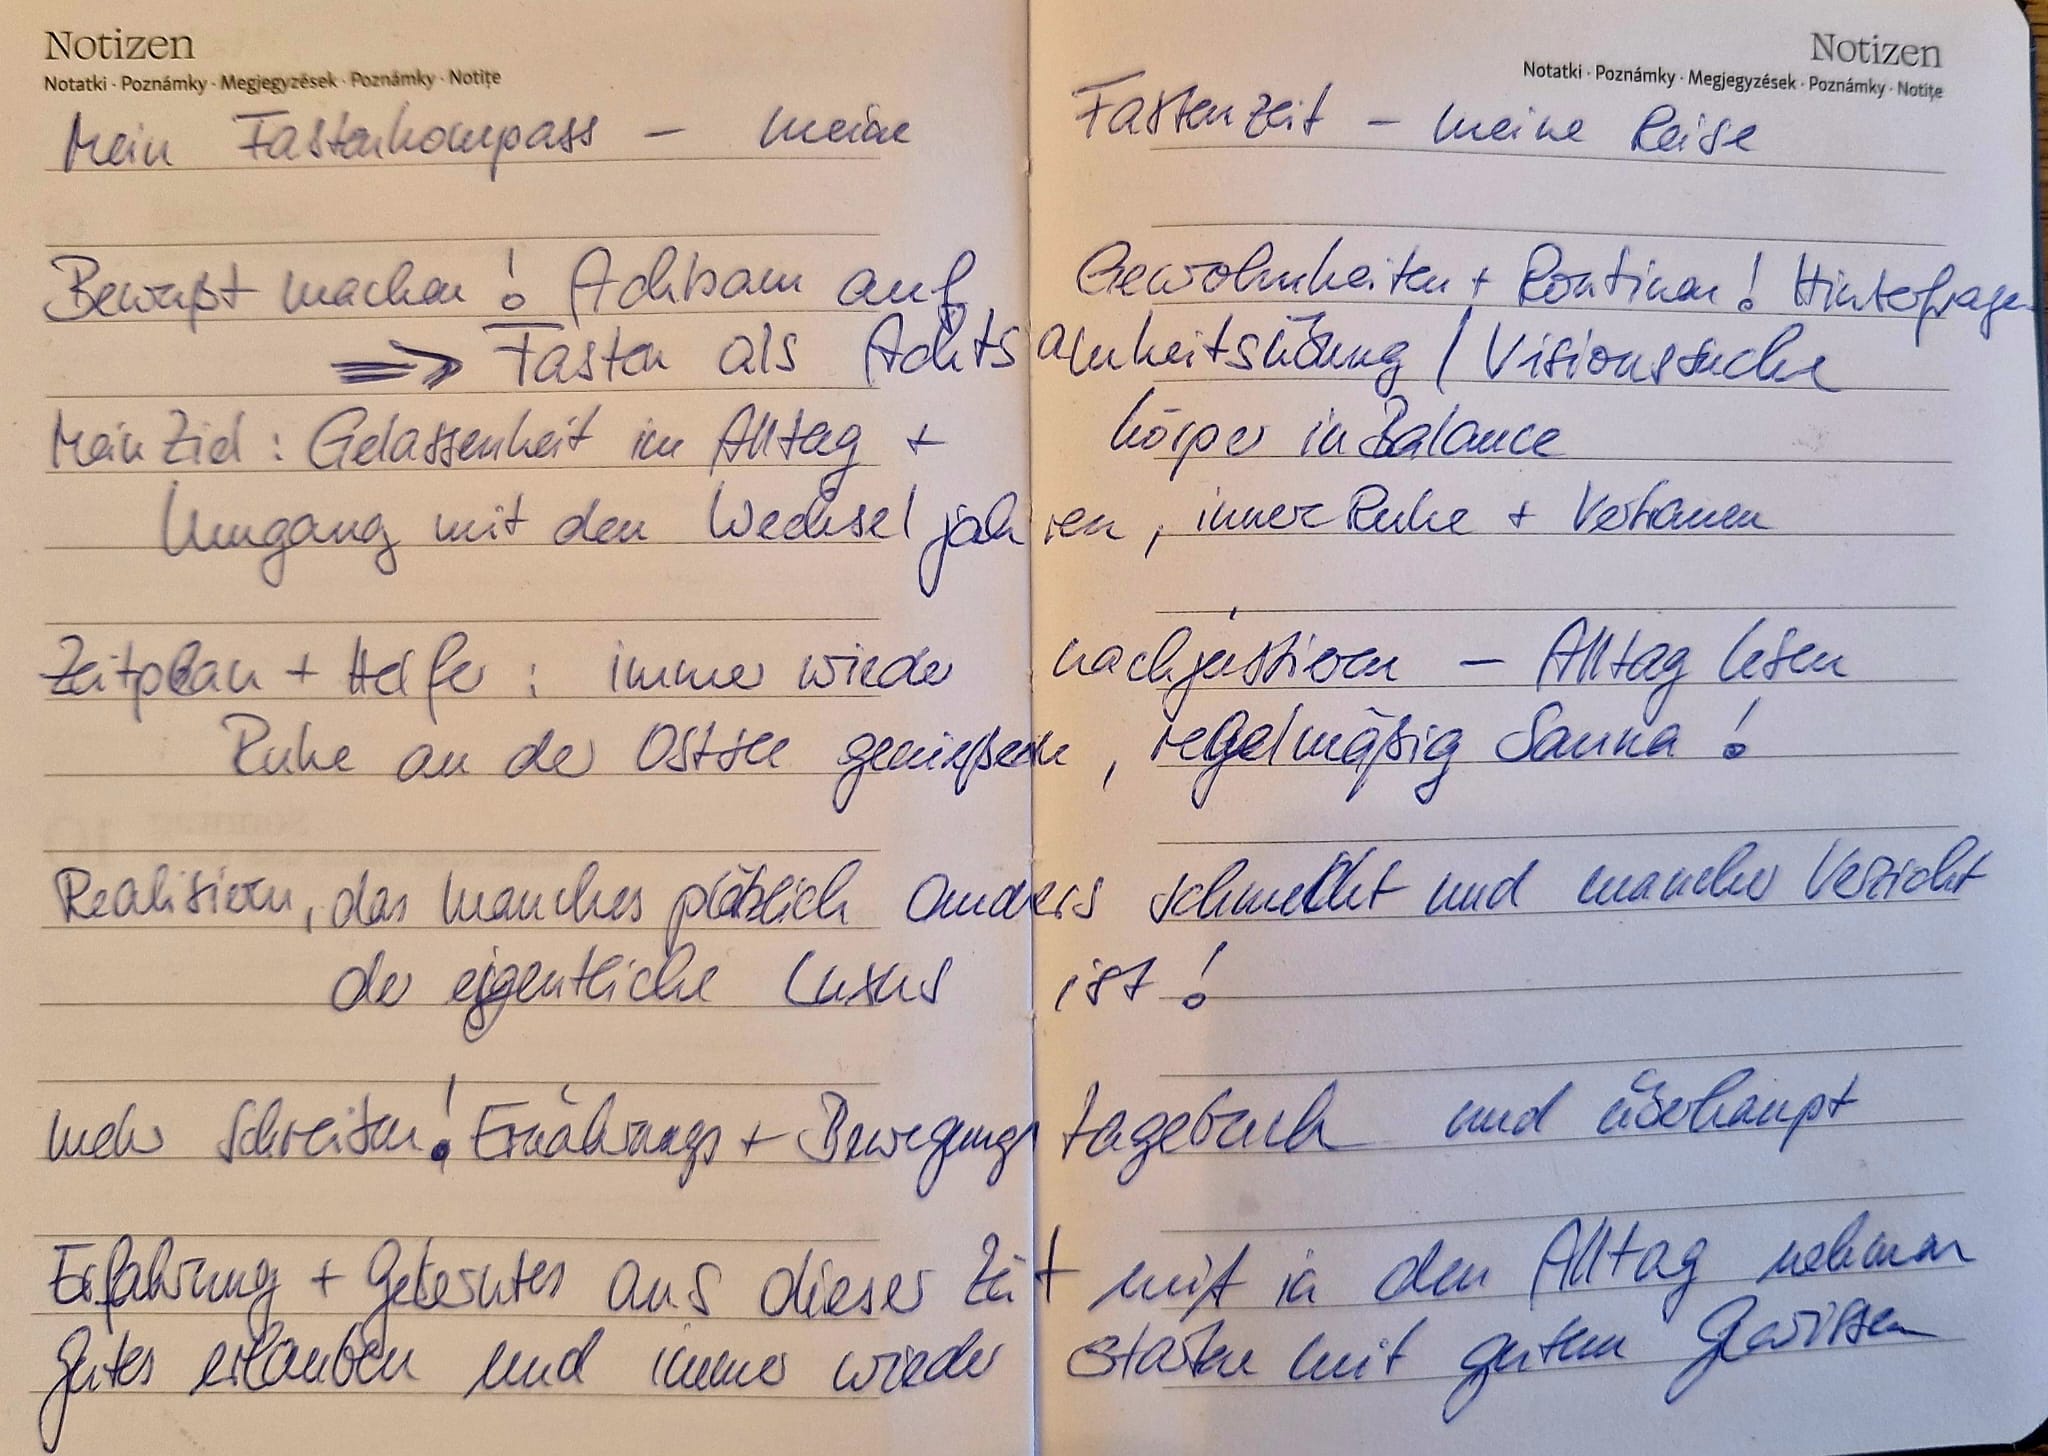 Notizen
Notatki · Poznámky · Megjegyzések · Poznámky · Notițe
Notizen
Notatki · Poznámky · Megjegyzések · Poznámky · Notițe
Mein Fastenkompass – meine Fastenzeit – meine Reise
Bewußt machen! Achtsam auf Gewohnheiten + Routinen! Hinterfragen
⇒ Fasten als Achtsamkeitsübung / Visionssuche
Mein Ziel: Gelassenheit im Alltag + Körper in Balance
Umgang mit den Wechseljahren, innere Ruhe + Vertrauen
Zeitplan + Helfer: immer wieder nachjustieren – Alltag lesen
Ruhe an der Ostsee genießen, regelmäßig Sauna!
Realisieren, das manches plötzlich anders schmeckt und mancher Verzicht
der eigentliche Luxus ist!
mehr schreiben! Ernährungs + Bewegungstagebuch und überhaupt
Erfahrung + Gelerntes aus dieser Zeit mit in den Alltag nehmen
Gutes erlauben und immer wieder starten mit gutem Gewissen